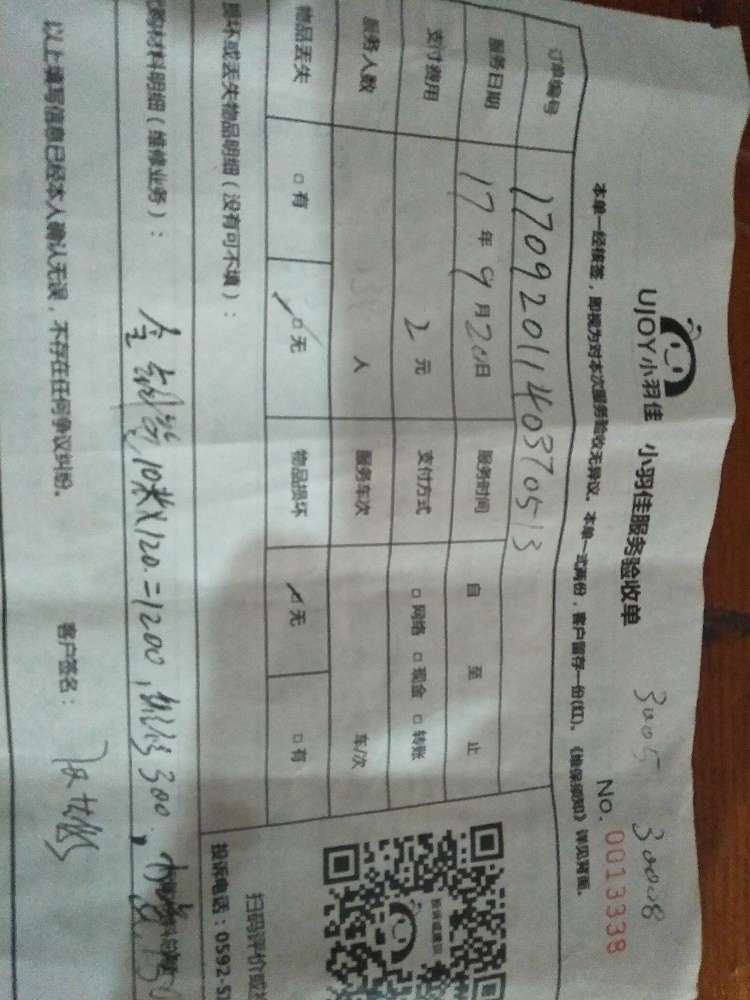 UJOY小羽佳 小羽佳服务验收单
3005 30008
No. 0013338
本单一经核签，即视为对本次服务验收无异议。本单一式两份，客户留存一份(红)。《维保须知》详见背面。
订单编号 1709201140370513
服务日期 17年9月20日 服务时间 自 至 止
支付费用 2元 支付方式 □网络 □现金 □转账
服务人数 人 服务车次 车/次
物品丢失 □有 □无 物品损坏 □无 □有
损坏或丢失物品明细（没有可不填）：
购材料明细（维修业务）： 10米X120=1200, 300.
以上填写信息已经本人确认无误，不存在任何争议纠纷。 客户签名：
扫码评价或
投诉电话：0592-5